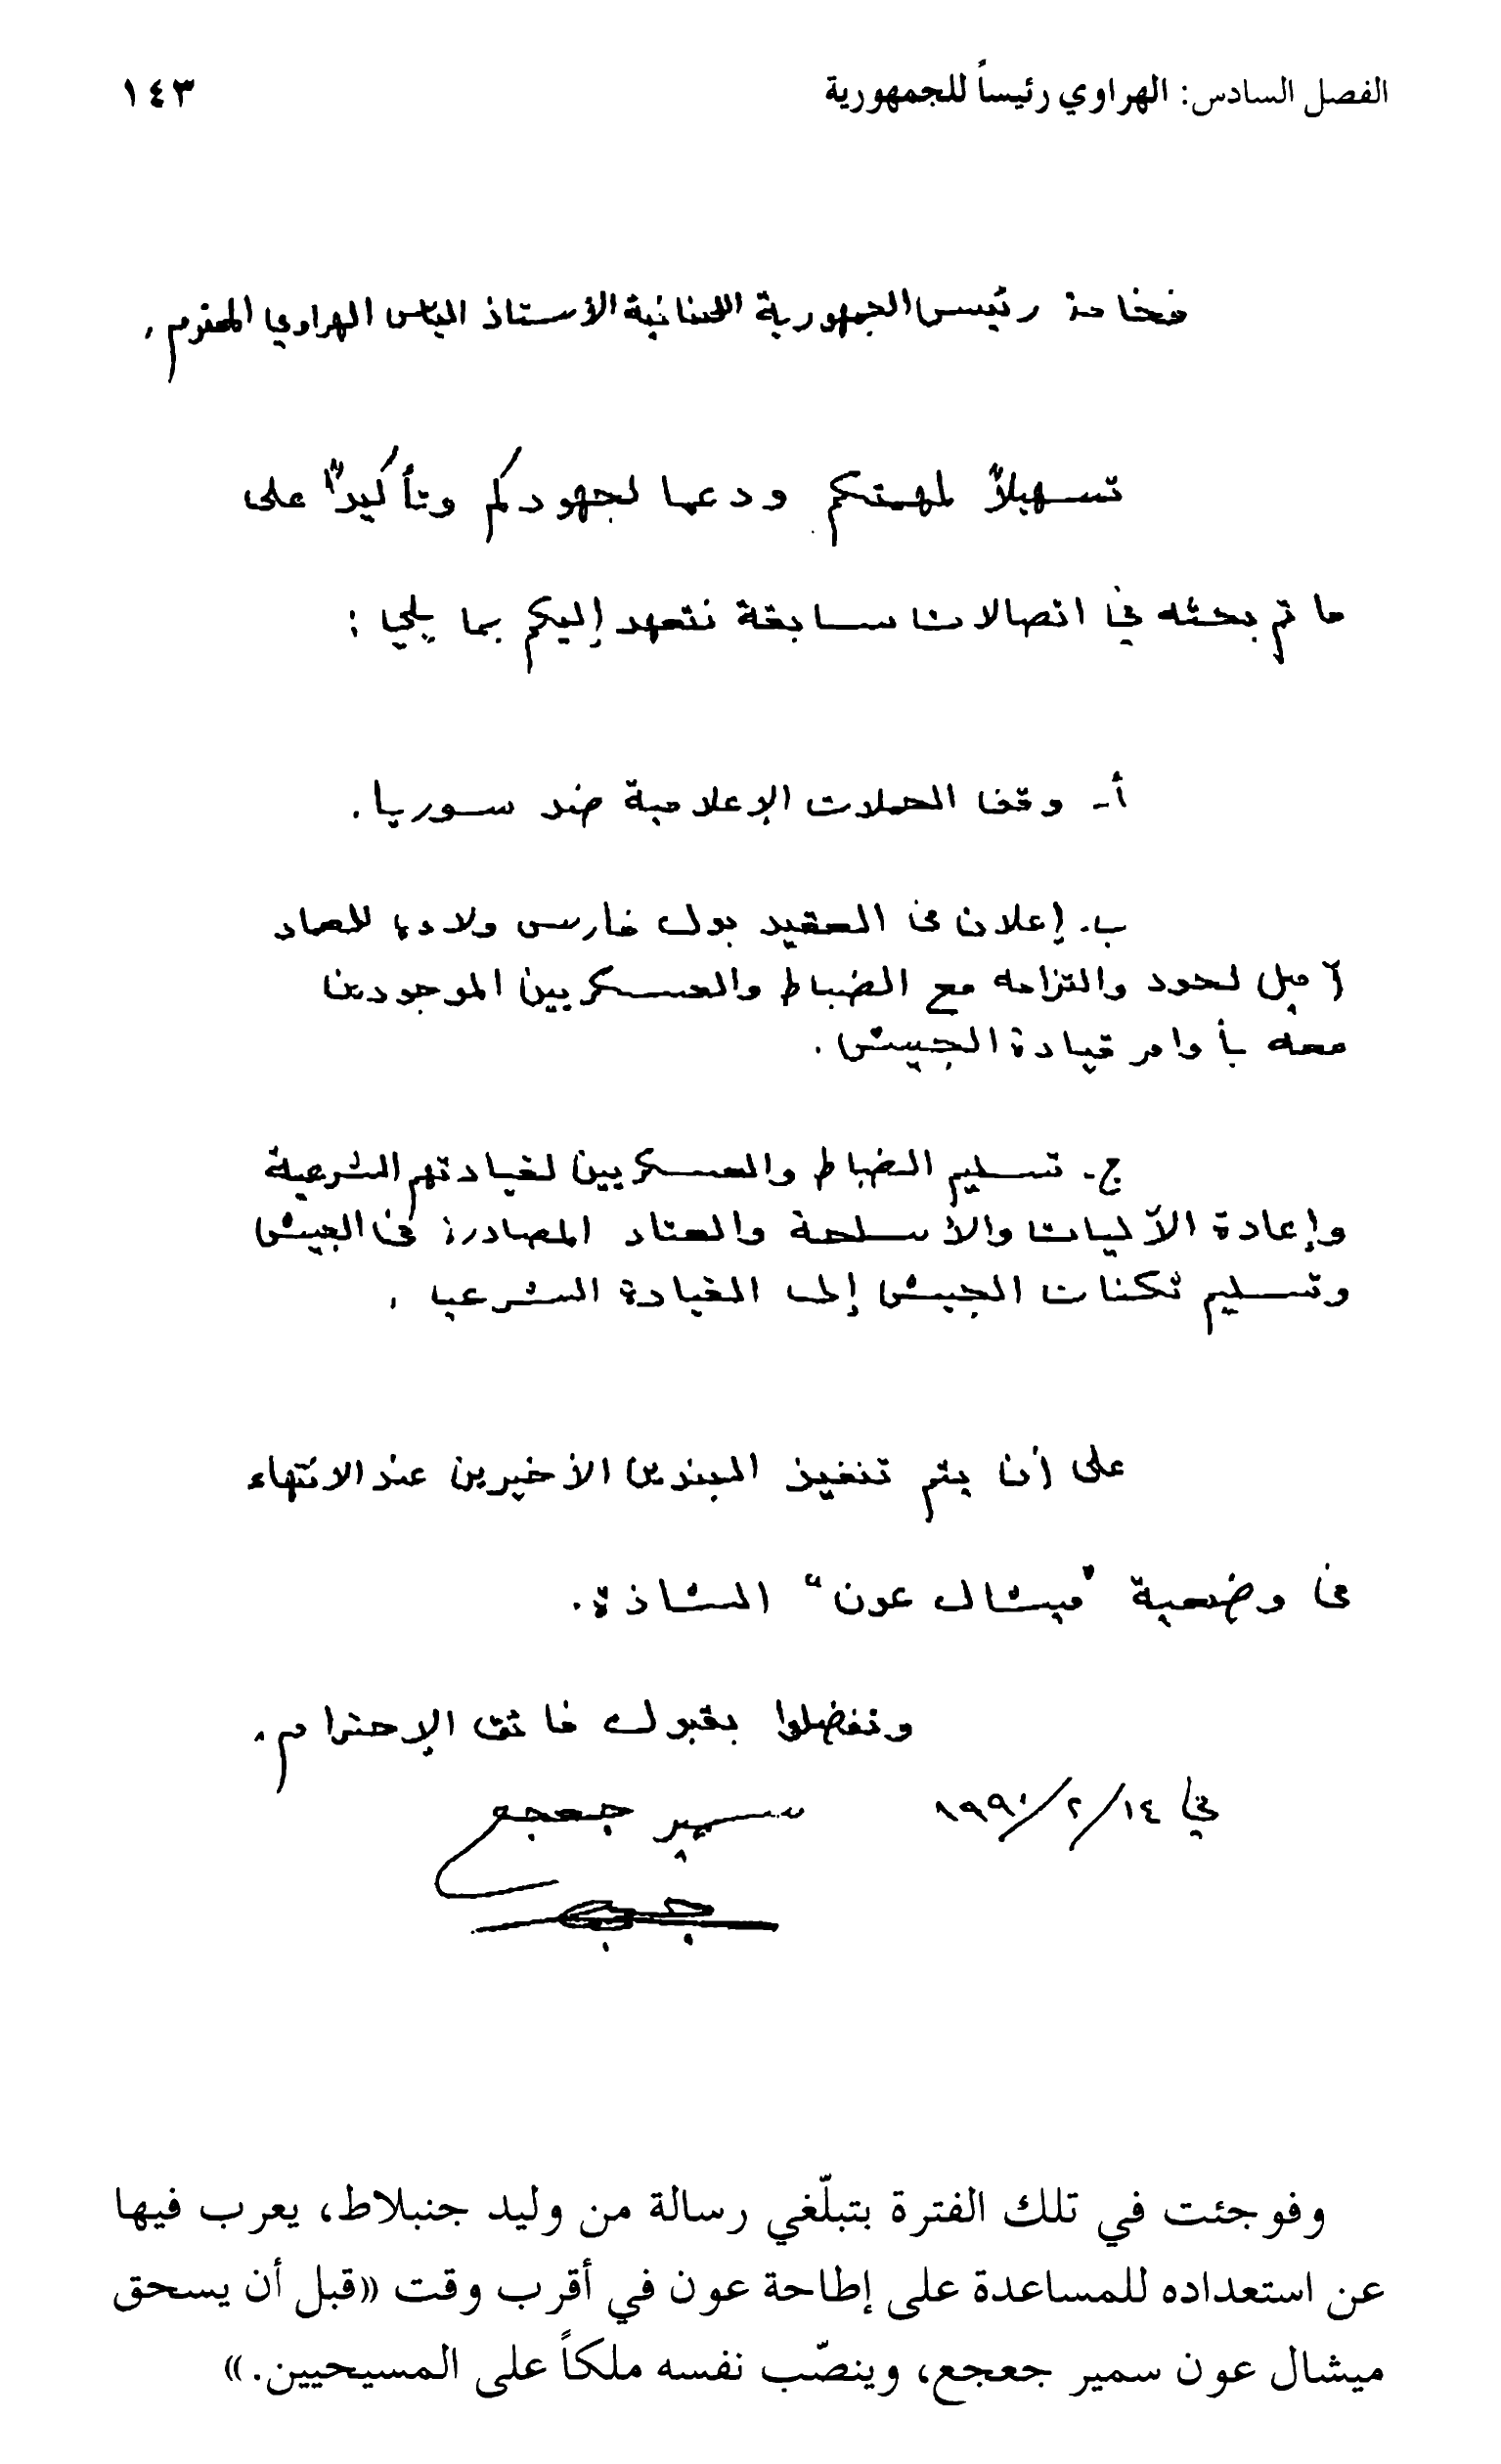 الفصل السادس: الهراوي رئيساً للجمهورية ١٤٣
فخامة رئيس الجمهورية اللبنانية الأستاذ الياس الهراوي المحترم،
تسهيلاً لمهمتكم ودعما لجهودكم وتأكيداً على
ما تم بحثه في اتصالات سابقة نتعهد إليكم بما يلي:
أ- وقف الحملات الإعلامية ضد سوريا.
ب- إعلان من العقيد بول فارس ولاءه للعماد
اميل لحود والتزامه مع الضباط والعسكريين الموجودين
معه بأوامر قيادة الجيش.
ج- تسليم الضباط والعسكريين لقيادتهم الشرعية
وإعادة الآليات والأسلحة والعتاد المصادرة من الجيش
وتسليم ثكنات الجيش إلى القيادة الشرعية.
على أن يتم تنفيذ البندين الأخيرين عند الانتهاء
من وضعية "ميشال عون" الشاذة.
وتفضلوا بقبول فائق الإحترام.
في ١٤/٢/١٩٩٠ سمير جعجع
وفوجئت في تلك الفترة بتبلّغي رسالة من وليد جنبلاط، يعرب فيها
عن استعداده للمساعدة على إطاحة عون في أقرب وقت «قبل أن يسحق
ميشال عون سمير جعجع، وينصّب نفسه ملكاً على المسيحيين.»